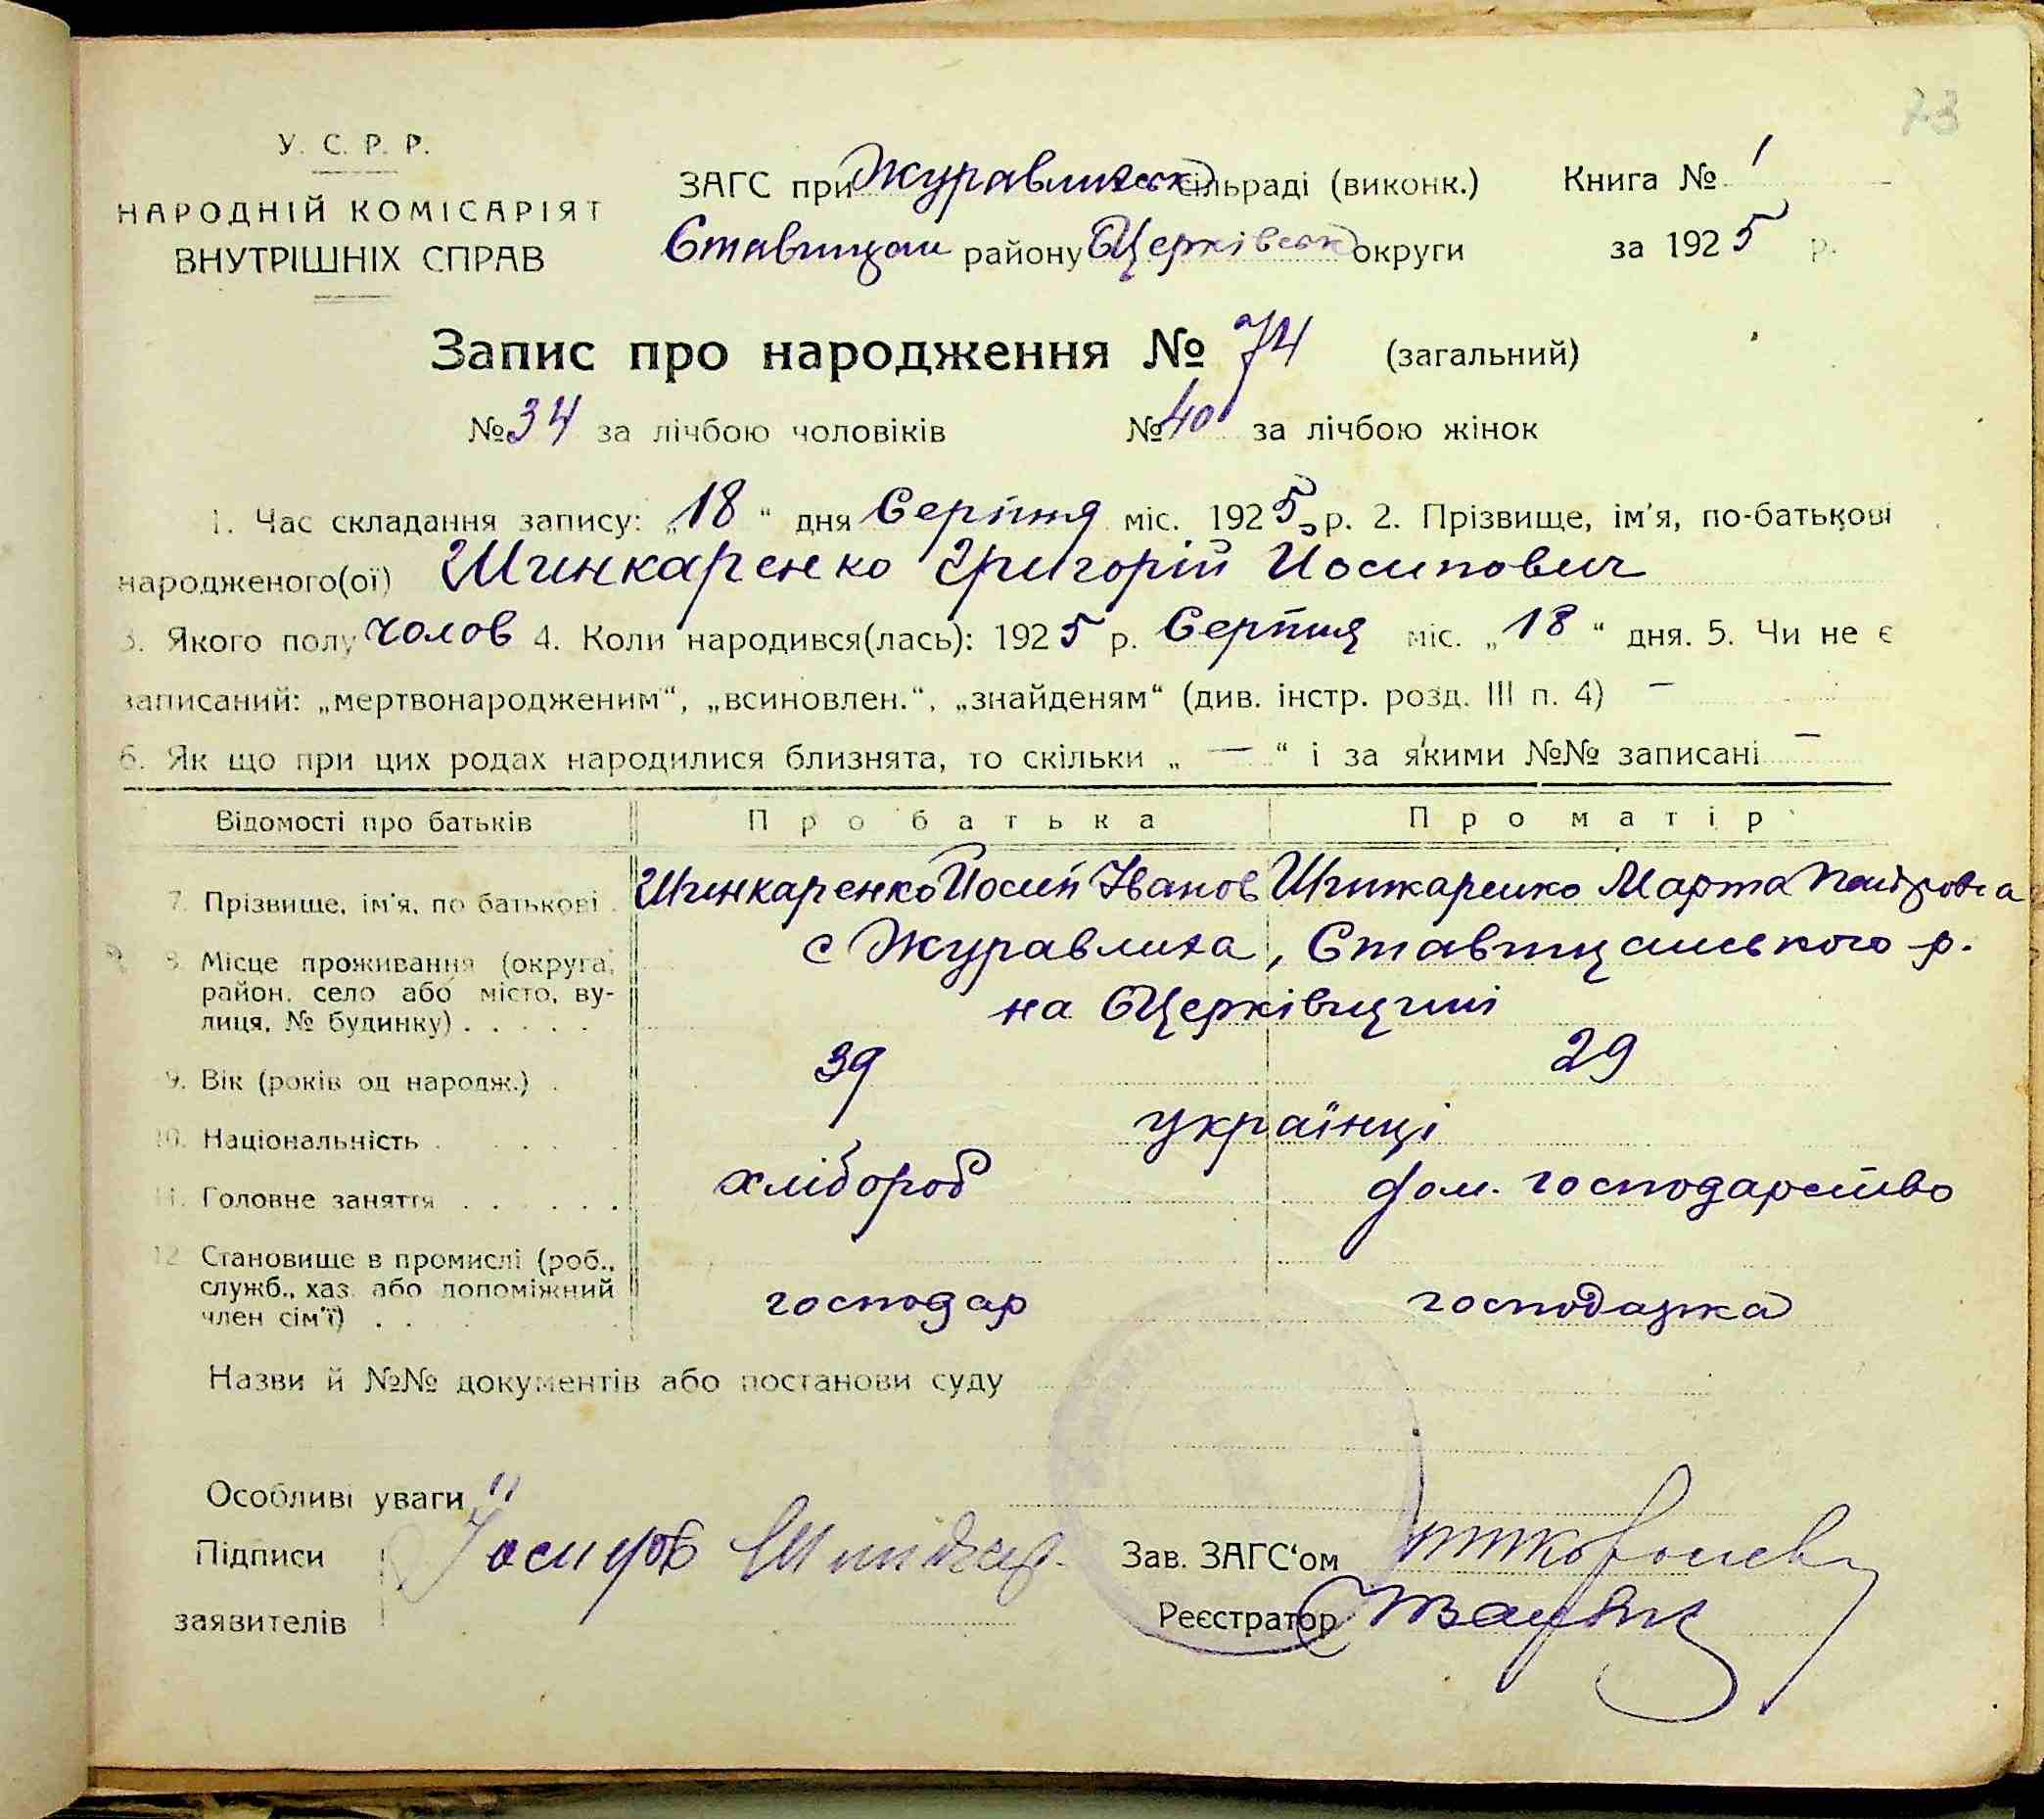 73
У. С. Р. Р.
НАРОДНІЙ КОМІСАРІЯТ
ВНУТРІШНІХ СПРАВ
ЗАГС при Журавлиськ сільраді (виконк.) Книга № 1
Ставищан району БЦерківськ округи за 1925 р.
Запис про народження № 74 (загальний)
№ 34 за лічбою чоловіків № 40 за лічбою жінок
1. Час складання запису: „18“ дня Серпня міс. 1925 р. 2. Прізвище, ім'я, по-батькові
народженого(ої) Шинкаренко Григорій Йосипович
3. Якого полу чолов 4. Коли народився(лась): 1925 р. Серпня міс. „18“ дня. 5. Чи не є
записаний: „мертвонародженим“, „всиновлен.“, „знайденям“ (див. інстр. розд. III п. 4) —
6. Як що при цих родах народилися близнята, то скільки „ — “ і за якими №№ записані —
Відомості про батьків Про батька Про матір
7. Прізвище, ім'я, по батькові . Шинкаренко Йосип Іванов Шинкаренко Марта Петровна
8. Місце проживання (округа, район, село або місто, вулиця, № будинку) . . . . . с Журавлиха, Ставищанського р.
на БЦерківщині
9. Вік (років од народж.) . 39 29
10. Національність . . . . . українці
11. Головне заняття . . . . . . хлібороб дом. господарство
12. Становище в промислі (роб., служб., хаз. або допоміжний член сім'ї) . . господар господарка
Назви й №№ документів або постанови суду
Особливі уваги
Підписи
заявителів
Зав. ЗАГС'ом
Реєстратор